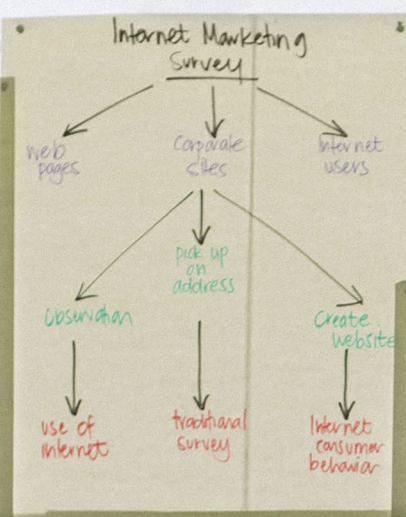 Internet Marketing
Survey
web
pages
Corporate
sites
Internet
users
pick up
on
address
Observation
Create
website
use of
internet
traditional
survey
Internet
consumer
behavior